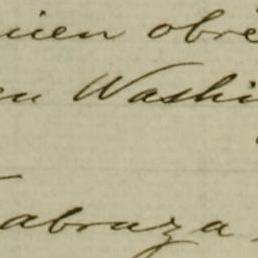 uien obre
en Washi
abraza